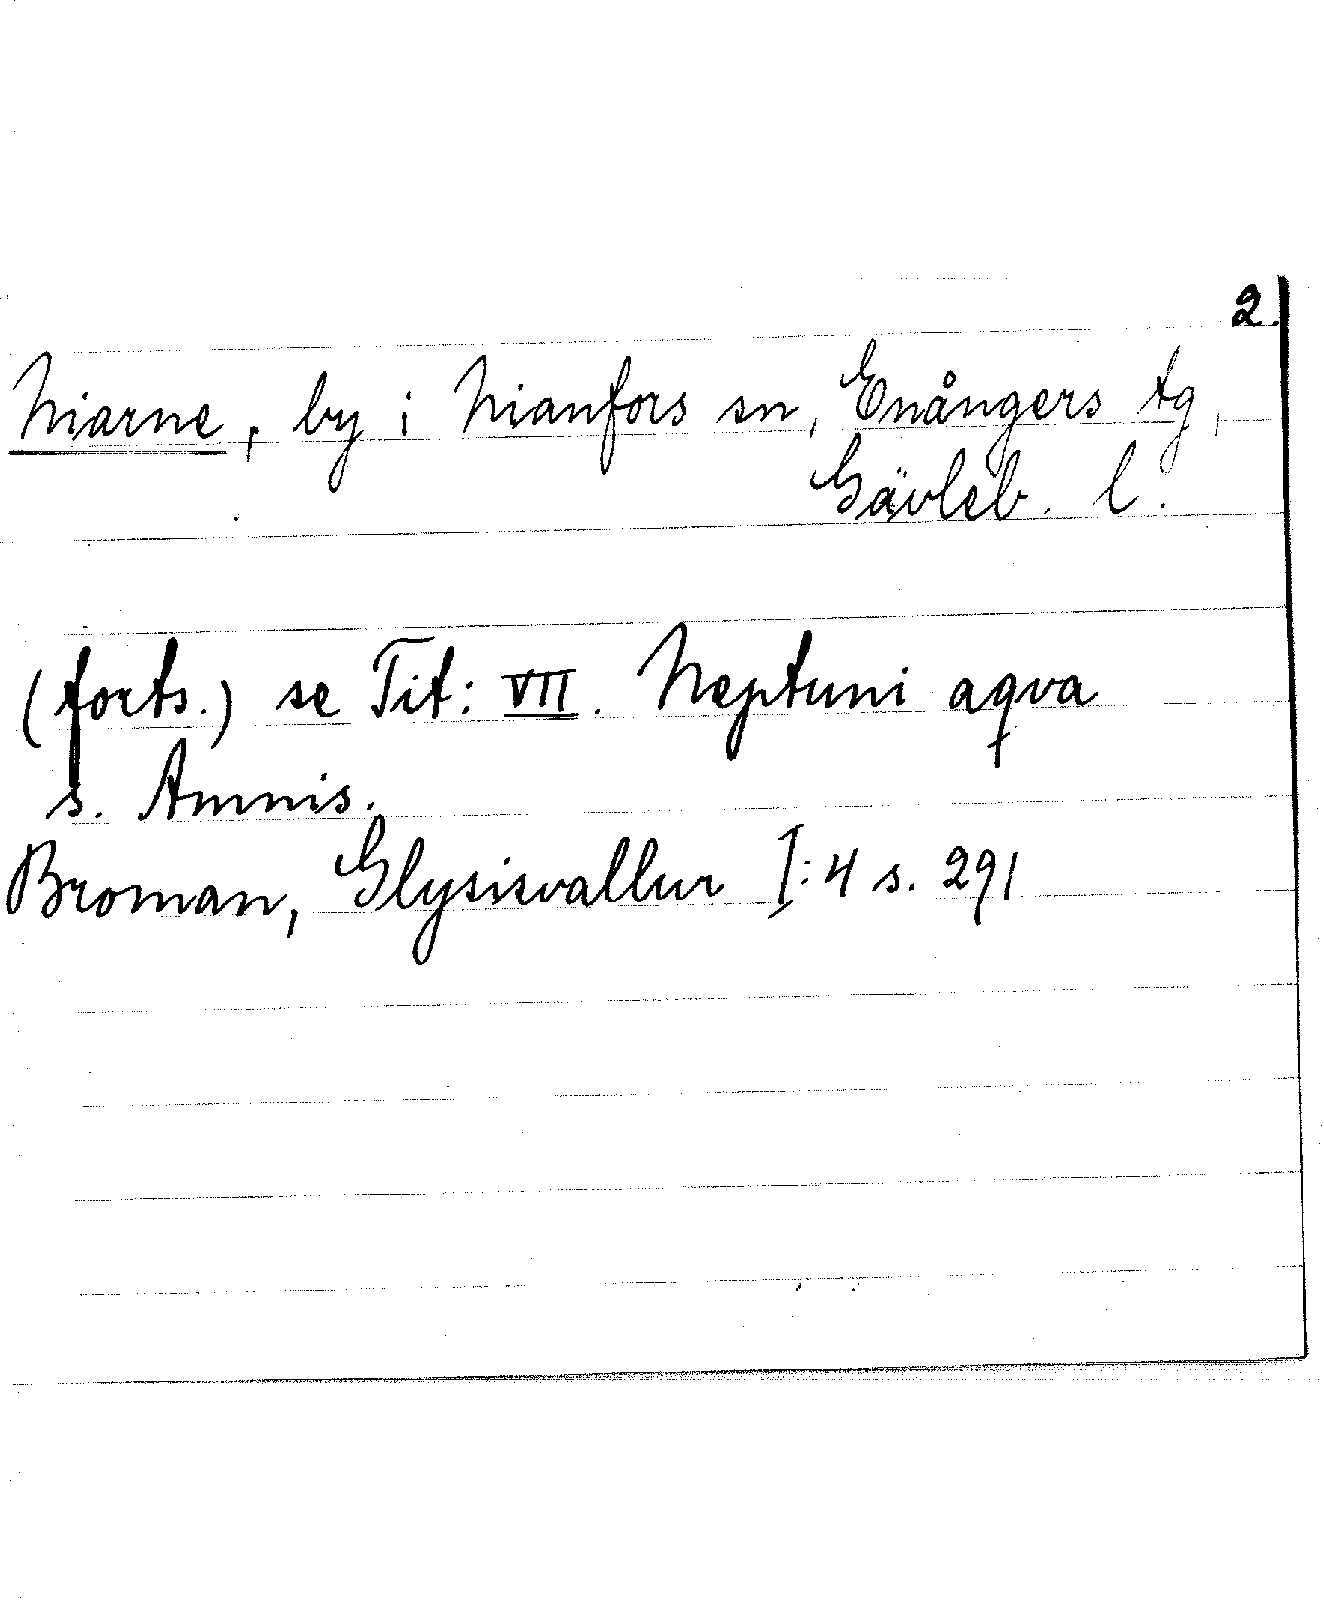 2.
Niarne, by i Nianfors sn, Enångers tg,
Gävleb. l.
(forts.) se Tit: VII. Neptuni aqva
s. Amnis.
Broman, Glysisvallur I:4 s. 291